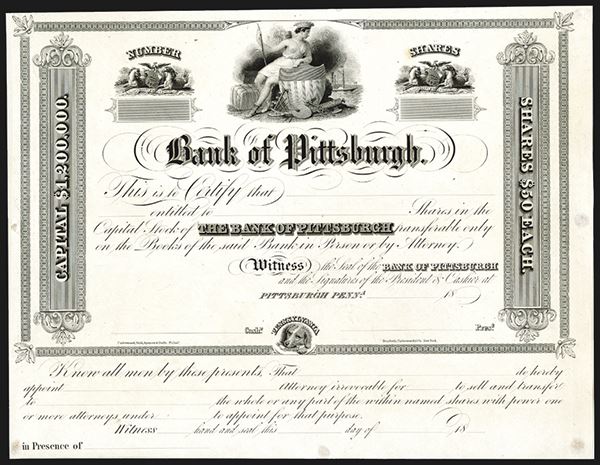 NUMBER
SHARES
CAPITAL $1,200,000.
SHARES $50 EACH.
Bank of Pittsburgh.
This is to Certify that
entitled to Shares in the
Capital Stock of THE BANK OF PITTSBURGH transferable only
on the Books of the said Bank in Person or by Attorney.
Witness the Seal of the BANK OF PITTSBURGH
and the Signatures of the President & Cashier at
PITTSBURGH PENNA. 18
Cashr. Prest.
PENNSYLVANIA
Know all men by these presents, That do hereby
appoint Attorney irrevocable for to sell and transfer
to the whole or any part of the within named shares with power one
or more attorneys under to appoint for that purpose.
Witness hand and seal this day of 18
in Presence of